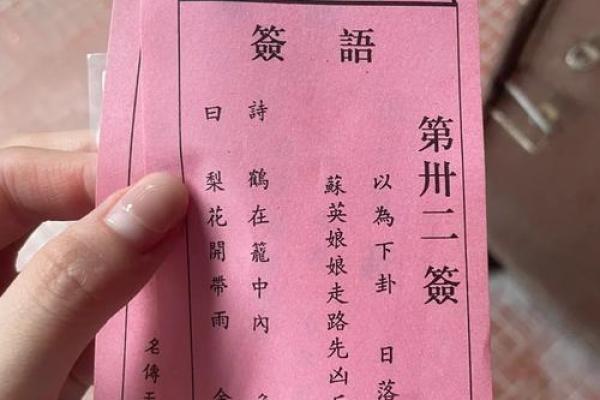 簽語
第卅二簽
以為下卦 日落
蘇英娘娘走路先凶
詩 鶴在籠中內
曰 梨花開帶雨
名傳